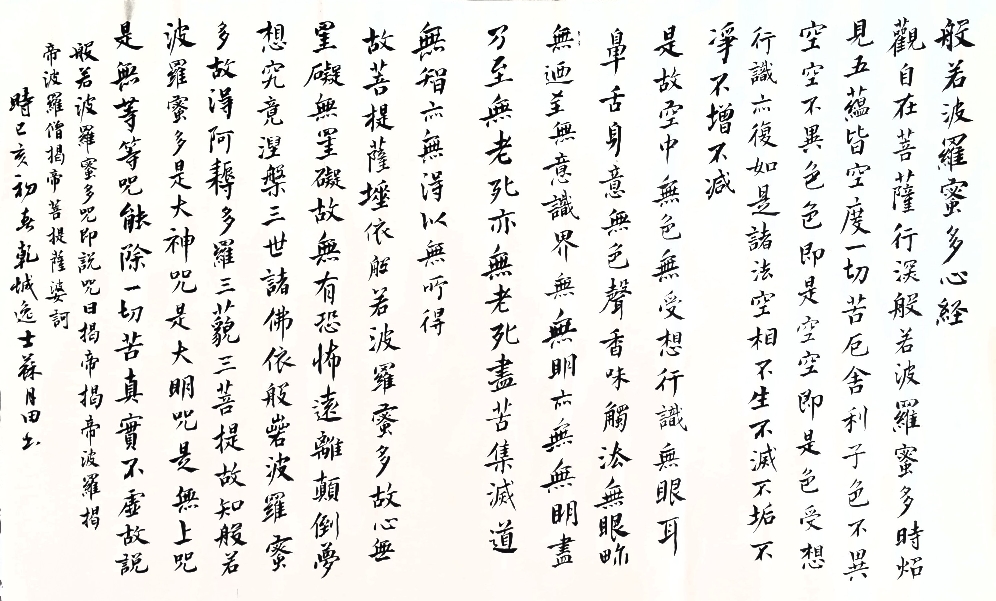 般若波羅蜜多心経
觀自在菩薩行深般若波羅蜜多時炤
見五蘊皆空度一切苦厄舍利子色不異
空空不異色色即是空空即是色受想
行識亦復如是諸法空相不生不滅不垢不
淨不增不减
是故空中無色無受想行識無眼耳
鼻舌身意無色聲香味觸法無眼畍
無廼至無意識界無無明亦無無明盡
乃至無老死亦無老死盡苦集滅道
無智亦無得以無所得
故菩提薩埵依般若波羅蜜多故心無
罣礙無罣礙故無有恐怖遠離顛倒夢
想究竟涅槃三世諸佛依般若波羅蜜
多故得阿耨多羅三藐三菩提故知般若
波羅蜜多是大神咒是大明咒是無上咒
是無等等咒能除一切苦真實不虛故説
般若波羅蜜多咒即説咒曰揭帝揭帝波羅揭
帝波羅僧揭帝菩提薩婆訶
時己亥初春乾城逸士蘇月田书